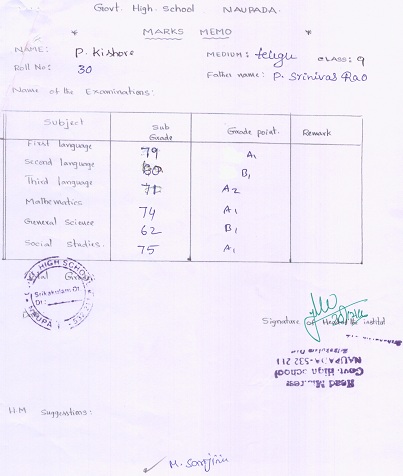 Govt. High. School NAUPADA.
* MARKS MEMO *
NAME: P. Kishore MEDIUM: telugu CLASS: 9
Roll No: 30 Father name: P. Srinivas Rao
Name of the Examinations:
Subject Sub Grade Grade point. Remark
First language 79 A1
Second language 60 B1
Third language 71 A2
Mathematics 74 A1
General Science 62 B1
Social Studies. 75 A1
HIGH SCHOOL
Srikakulam Dt.
Dt:
NAUPA
Signature of Head of the institut
Head
Govt. High School
NAUPADA-532 211
H.M Suggestions: